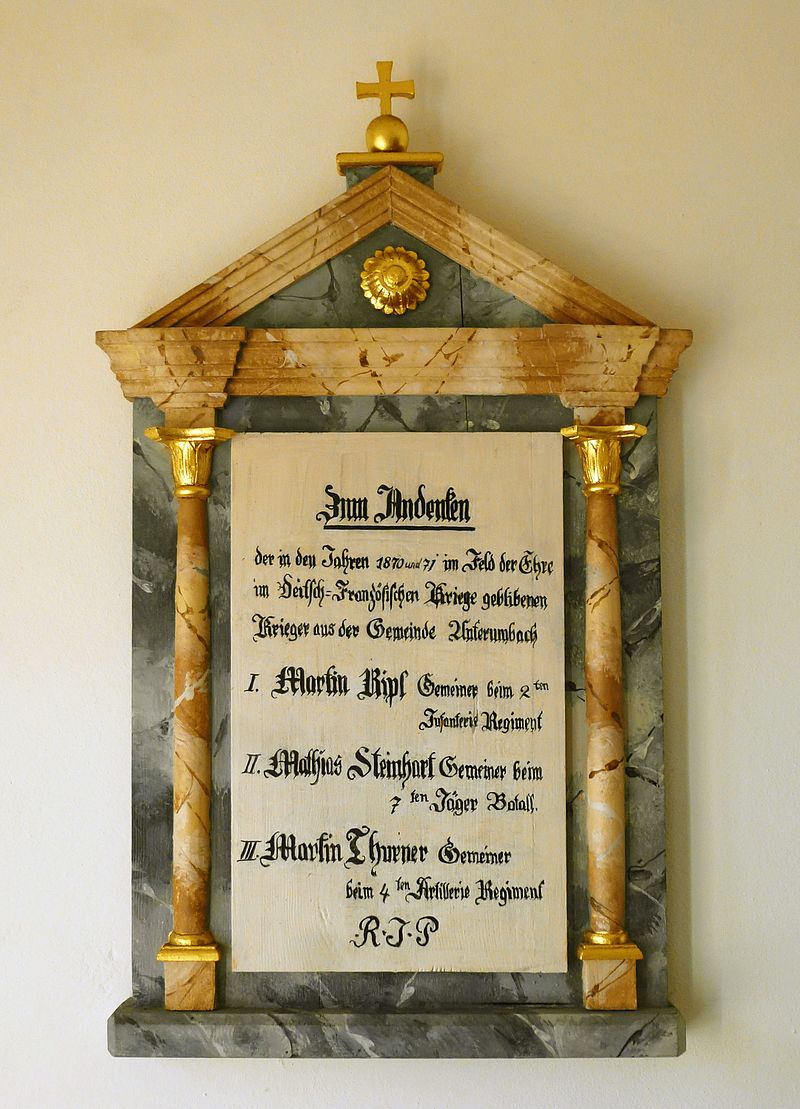 Zum Andenken
der in den Jahren 1870 und 71 im Feld der Ehre
im Deitsch=Französischen Kriege geblibenen
Krieger aus der Gemeinde Unterumbach
I. Martin Ripl Gemeiner beim 2ten
Infanterie Regiment
II. Mathias Steinhart Gemeiner beim
7ten Jäger Batall.
III. Martin Thurner Gemeiner
beim 4ten Artillerie Regiment
R.I.P